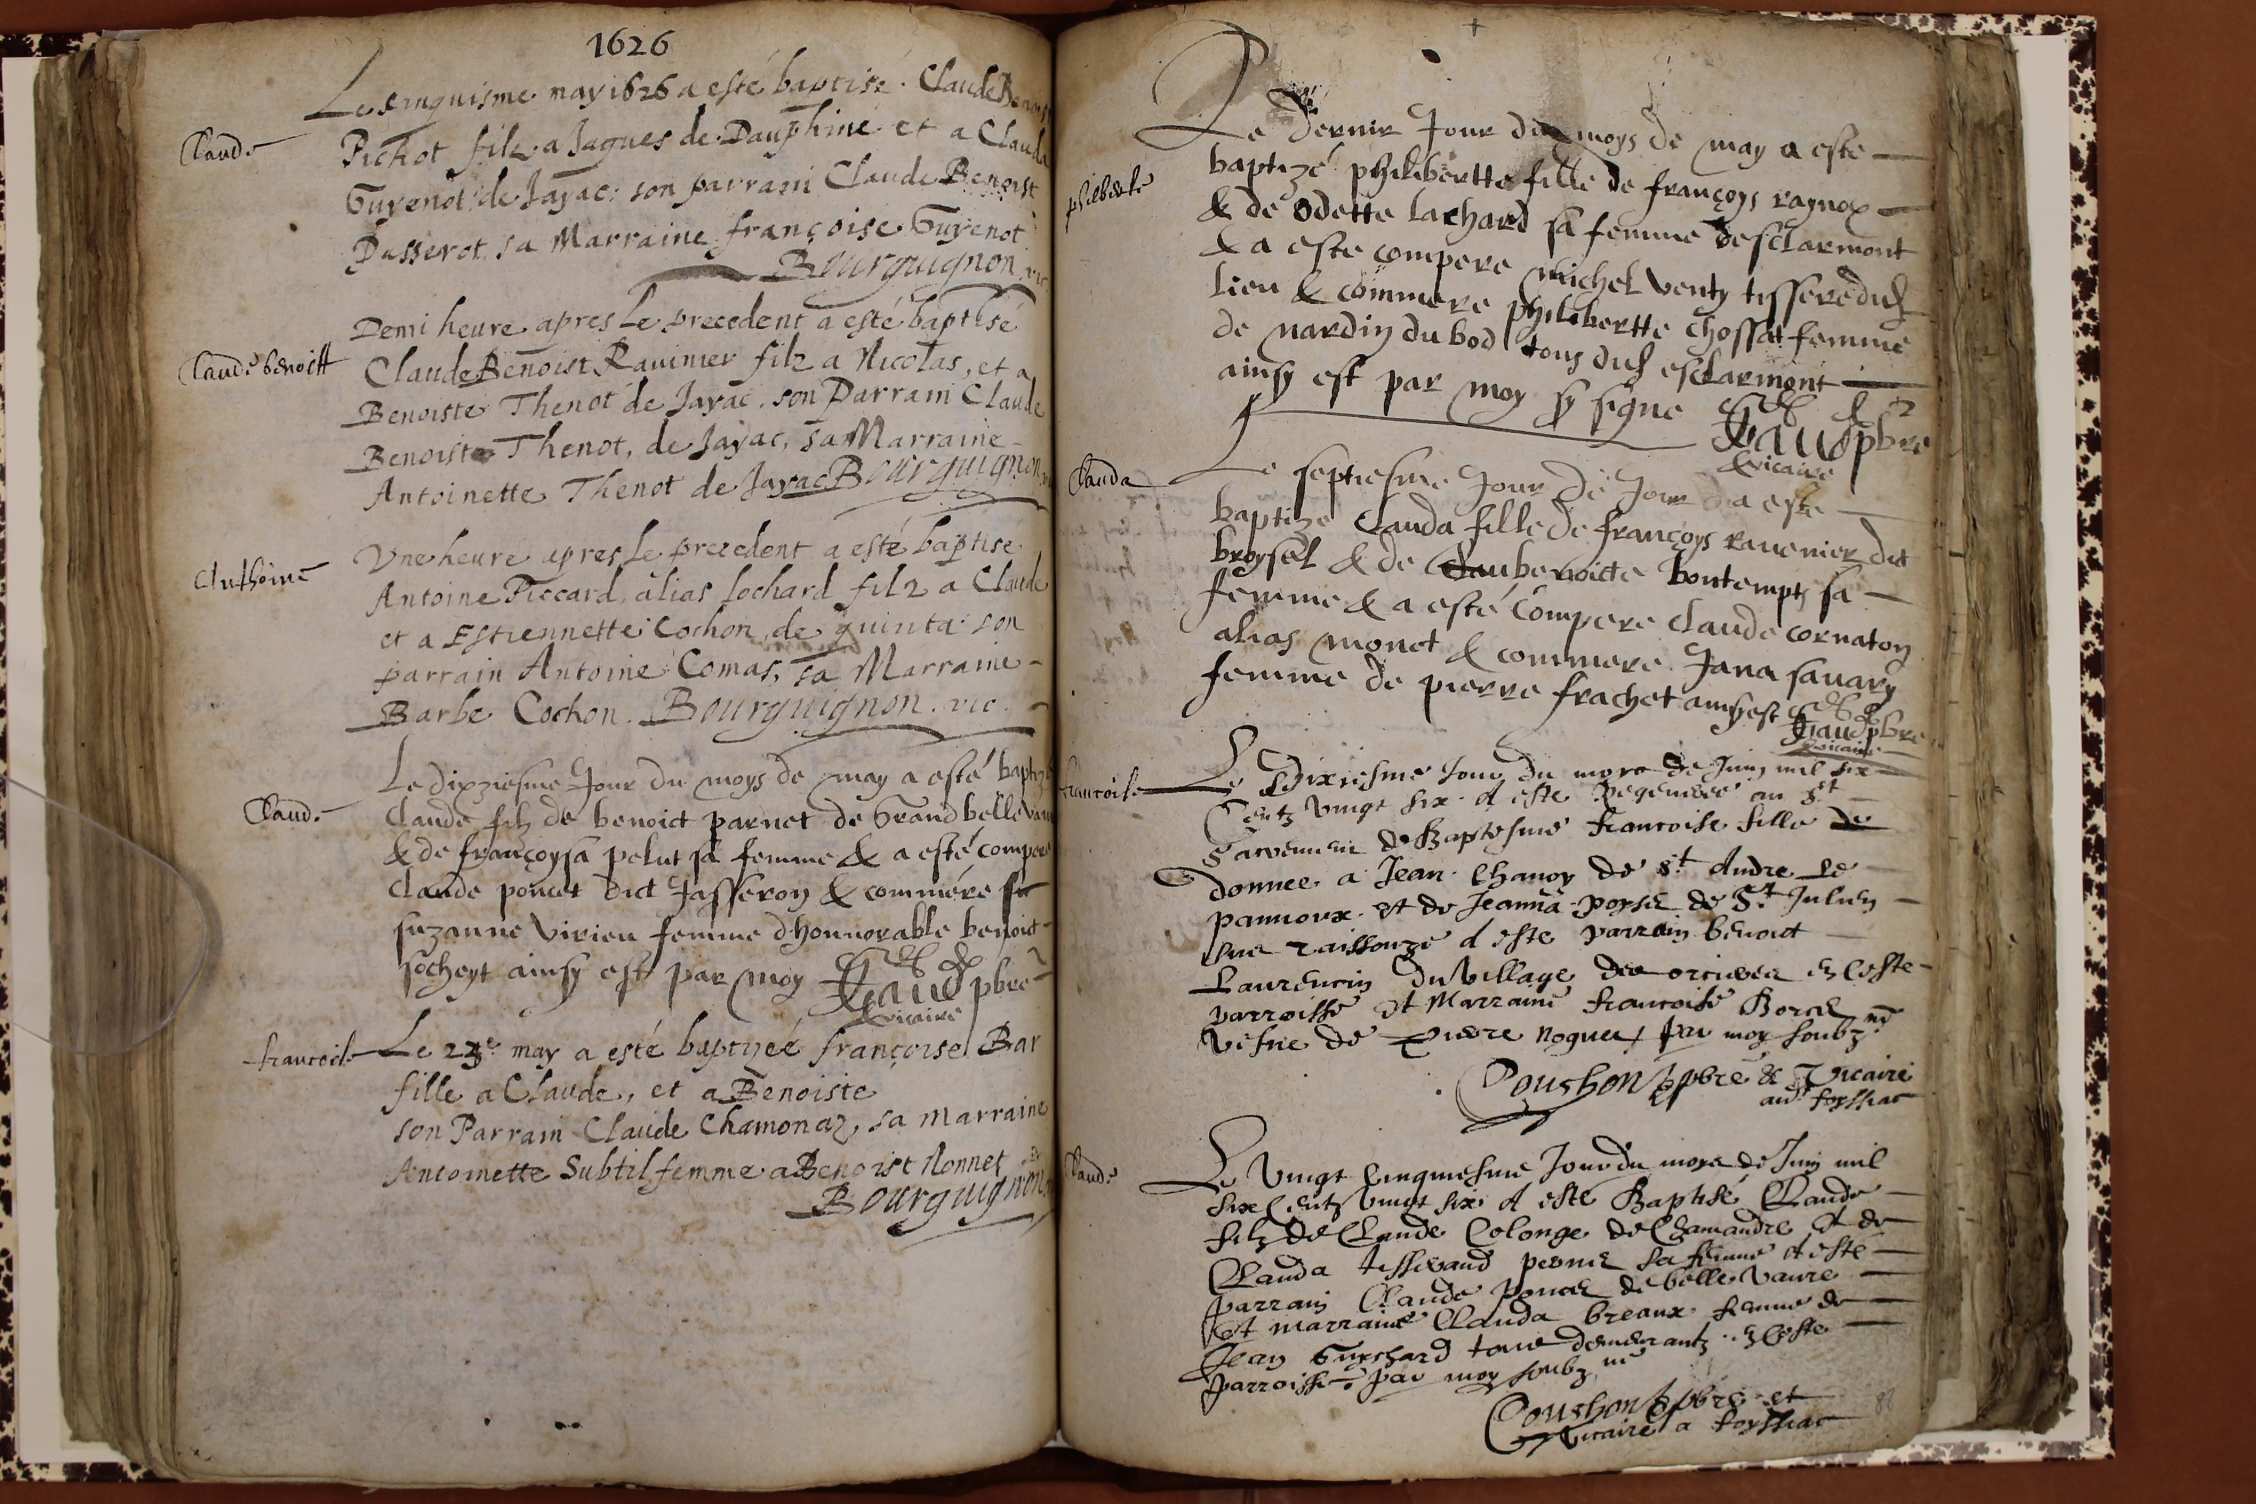 1626
Le cinquisme may 1626 a esté baptisé. Claude Benoist
Claude
Pichot filz a Jaques de Dauphiné et a Clauda
Guyenot de Jayac: son parrain Claude Benoist
Passerot. sa Marraine françoise Guyenot
Bourguignon. vic
Demi heure apres le precedent a esté baptisé
Claude benoist
Claude Benoist Ravinier filz a Nicolas, et a
Benoiste Thenot de Jayac. son Parrain Claude
Benoist Thenot, de Jayac, sa Marraine
Antoinette Thenot de Jayac Bourguignon
Une heure apres le precedent a esté baptisé
Anthoine
Antoine Piccard, alias Lochard filz a Claude
et a Estiennette Cochon de quinta son
parrain Antoine Comas, sa Marraine
Barbe Cochon. Bourguignon. vic.
Le dixziesme Jour du moys de may a esté baptizé
Claude
Claude filz de benoict parnet de Grand bellevaure
& de françoysa pelut sa femme & a esté compere
Claude poncet dict Jasseron & commére
suzanne virieu femme d'honnorable benoict
socheyt ainsy est par moy pbre
vicaire
francoise
Le 23e. may a esté baptizéé françoise Bar
fille a Claude, et a Benoiste
son Parrain Claude Chamonaz, sa Marraine
Antoinette Subtil femme a Benoist Nonnet
Bourguignon
Le dernir Jour du moys de may a este
philiberte
baptizé philibertte fille de françoys raynox
& de Odette Lachard sa femme desclarmont
& a este compere michel venty tissere dud
lieu & commere philibertte chossat femme
de nardin du bod tous dud esclarmont
ainsy est par moy sy signe
pbre
vicaire
Clauda
Le septiesme Jour de Jour a este
baptize Clauda fille de françoys ravenier dit
broysel & de benoicte bontemptz sa
femme & a esté Compere Claude cornaton
alias monet & commere Jana savary
femme de pierre frachet ainsy est
pbre
vicaire
francoise
Le Dixiesme Jour du moys de Juin mil six
Centz vingt six. A este Regeneree au St
Sacrement de Baptesme francoise fille de
donnee a Jean Chanoy de St. Andre Le
pannoux. et de Jeanna poyset de St. Julien
sur raissouze A este parrain benoict
Laurencin du village des orcieres en ceste
parroisse et Marraine francoise Borcel
vefve de Pierre Noguet par moy soubz.né
Couchon pbre & Vicaire
aud foyssiat
Claude
Le vingt Cinquiesme Jour du moys de Juin mil
six Centz vingt six A esté Baptisé Claude
filz de Claude Colonge de Chamandre et de
Clauda tisserand pernet sa femme A esté
parrain Claude poncet de belle vaure
et marraine Clauda breaux femme de
Jean Guychard tous demeurantz en ceste
parroisse par moy soubz.né
Couchon pbre et
Vicaire a foyssiat